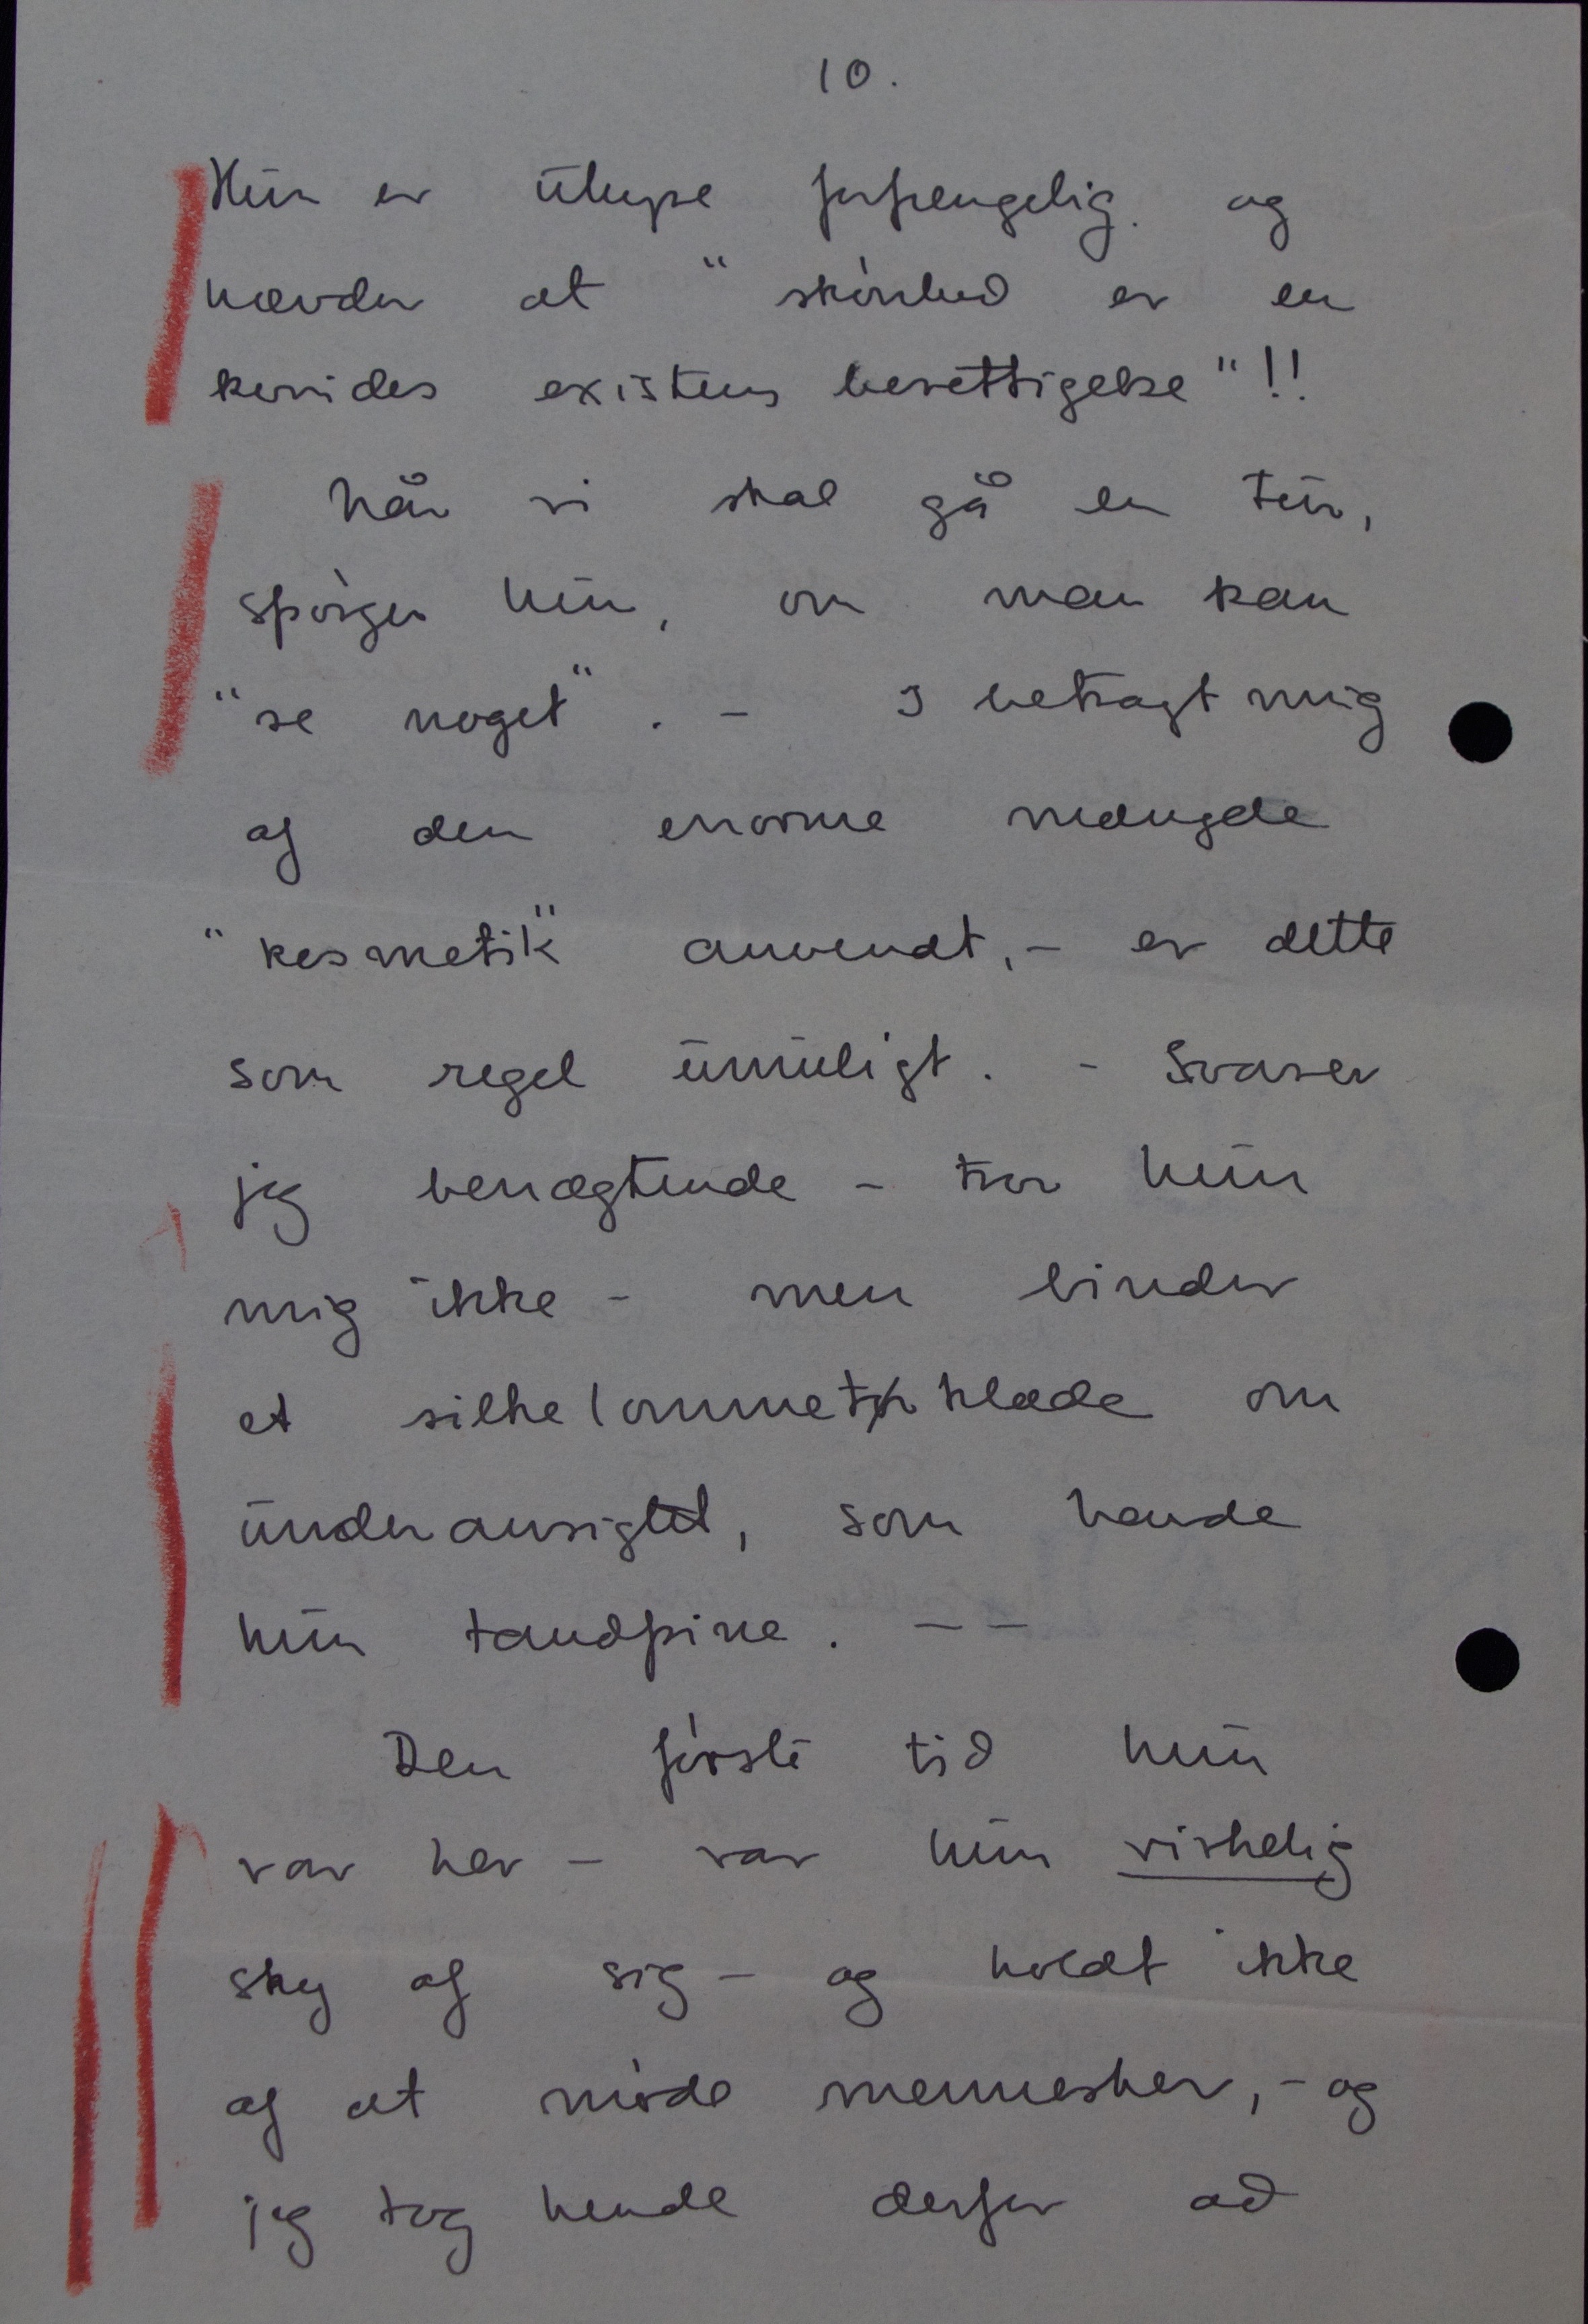 10.
Hun er ulupe forfengelig. og
hevder at "skinhed er en
kvindes existens berettigelse"!!
Når vi skal gå en tur,
spörger hun, om man kan
"se noget". - I betragt mig
af den enorme mængde
"kosmetik" anvendt, - er dette
som regel umuligt. - Svarer
jeg benægtende - tror hun
mig ikke - men binder
et silkelommetørklæde om
underansigtet, som havde
hun tandpine. - -
Den förste tid hun
var her - var hun virkelig
sky af sig - og holdt ikke
af at möde mennesker, - og
jeg tog hende derfor ad